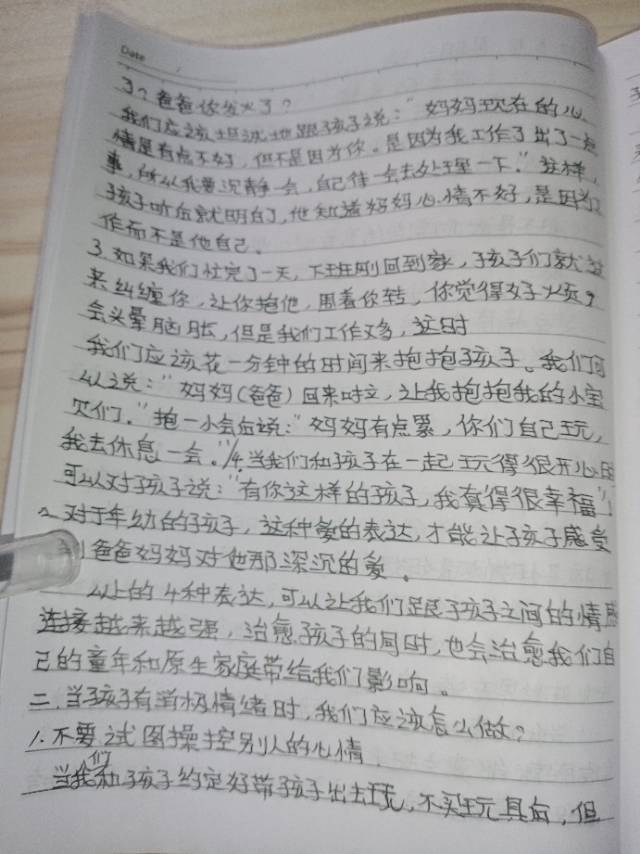 Date
了？爸爸你发火了？
我们应该坦诚地跟孩子说："妈妈现在的心
情是有点不好，但不是因为你。是因为我工作了出了一点
事，所以我要沉静一会，自己待一会去处理一下。"这样，
孩子听后就明白了，他知道妈妈心情不好，是因为工
作而不是他自己。
3. 如果我们忙完了一天，下班刚回到家，孩子们就会
来纠缠你，让你抱他，围着你转，你觉得好火烦？
会头晕脑胀，但是我们工作又多，这时
我们应该花一分钟的时间来抱抱孩子。我们可
以说："妈妈（爸爸）回来时立，让我抱抱我的小宝
贝们。"抱一小会后说："妈妈有点累，你们自己玩，
我去休息一会。"/4.当我们和孩子在一起玩得很开心时
可以对孩子说："有你这样的孩子，我真得很幸福"！
对于年幼的孩子，这种爱的表达，才能让孩子感受
到爸爸妈妈对他那深沉的爱。
以上的4种表达，可以让我们跟孩子之间的情感
连接越来越强，治愈孩子的同时，也会治愈我们自
己的童年和原生家庭带给我们影响。
二.当孩子有消极情绪时，我们应该怎么做？
1.不要试图操控别人的心情
当我们和孩子约定好带孩子出去玩，不买玩具后，但